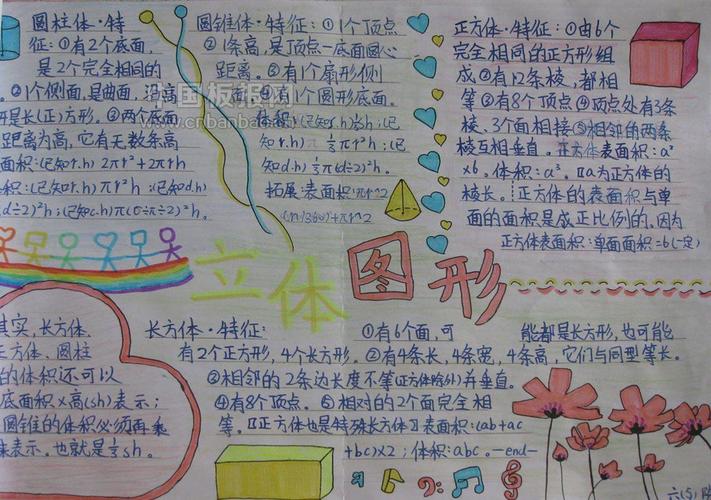 圆柱体·特
征:①有2个底面,
是2个完全相同的
②1个侧面,是曲面,沿高
开是长(正)方形。③两个底面
距离为高,它有无数条高
面积:(已知r.h) 2πr²+2πrh
体积:(已知r.h)πr²h;(已知d.h)
(d÷2)²h;(已知c.h)π(c÷π÷2)²h。
圆锥体·特征:①1个顶点
②1条高,是顶点—底面圆心
距离。③有1个扇形侧
④1个圆形底面。
体积:(已知s.h)⅓sh;(已
知r.h) ⅓πr²h;(已
知d.h)⅓π(d÷2)²h。
拓展:表面积:πr^2
(n/360)+πr^2
正方体·特征:①由6个
完全相同的正方形组
成②有12条棱,都相
等③有8个顶点④顶点处有3条
棱、3个面相接⑤相邻的两条
棱互相垂直。正方体表面积:a²
×6。体积:a³。〖a为正方体的
棱长。正方体的表面积与单
面的面积是成正比例的。因为
正方体表面积:单面面积=6(一定)
中国板报网
www.cnbanbao.com
立体图形
其实,长方体、
正方体、圆柱
的体积还可以
底面积×高(sh)表示;
圆锥的体积必须再乘
来表示。也就是⅓sh。
长方体·特征: ①有6个面,可 能都是长方形,也可能
有2个正方形,4个长方形。②有4条长,4条宽,4条高,它们与同型等长。
③相邻的2条边长度不等(正方体除外)并垂直。
④有8个顶点。⑤相对的2个面完全相
等。〖正方体也是特殊长方体〗表面积:(ab+ac
+bc)×2;体积:abc。—end—
六(5)